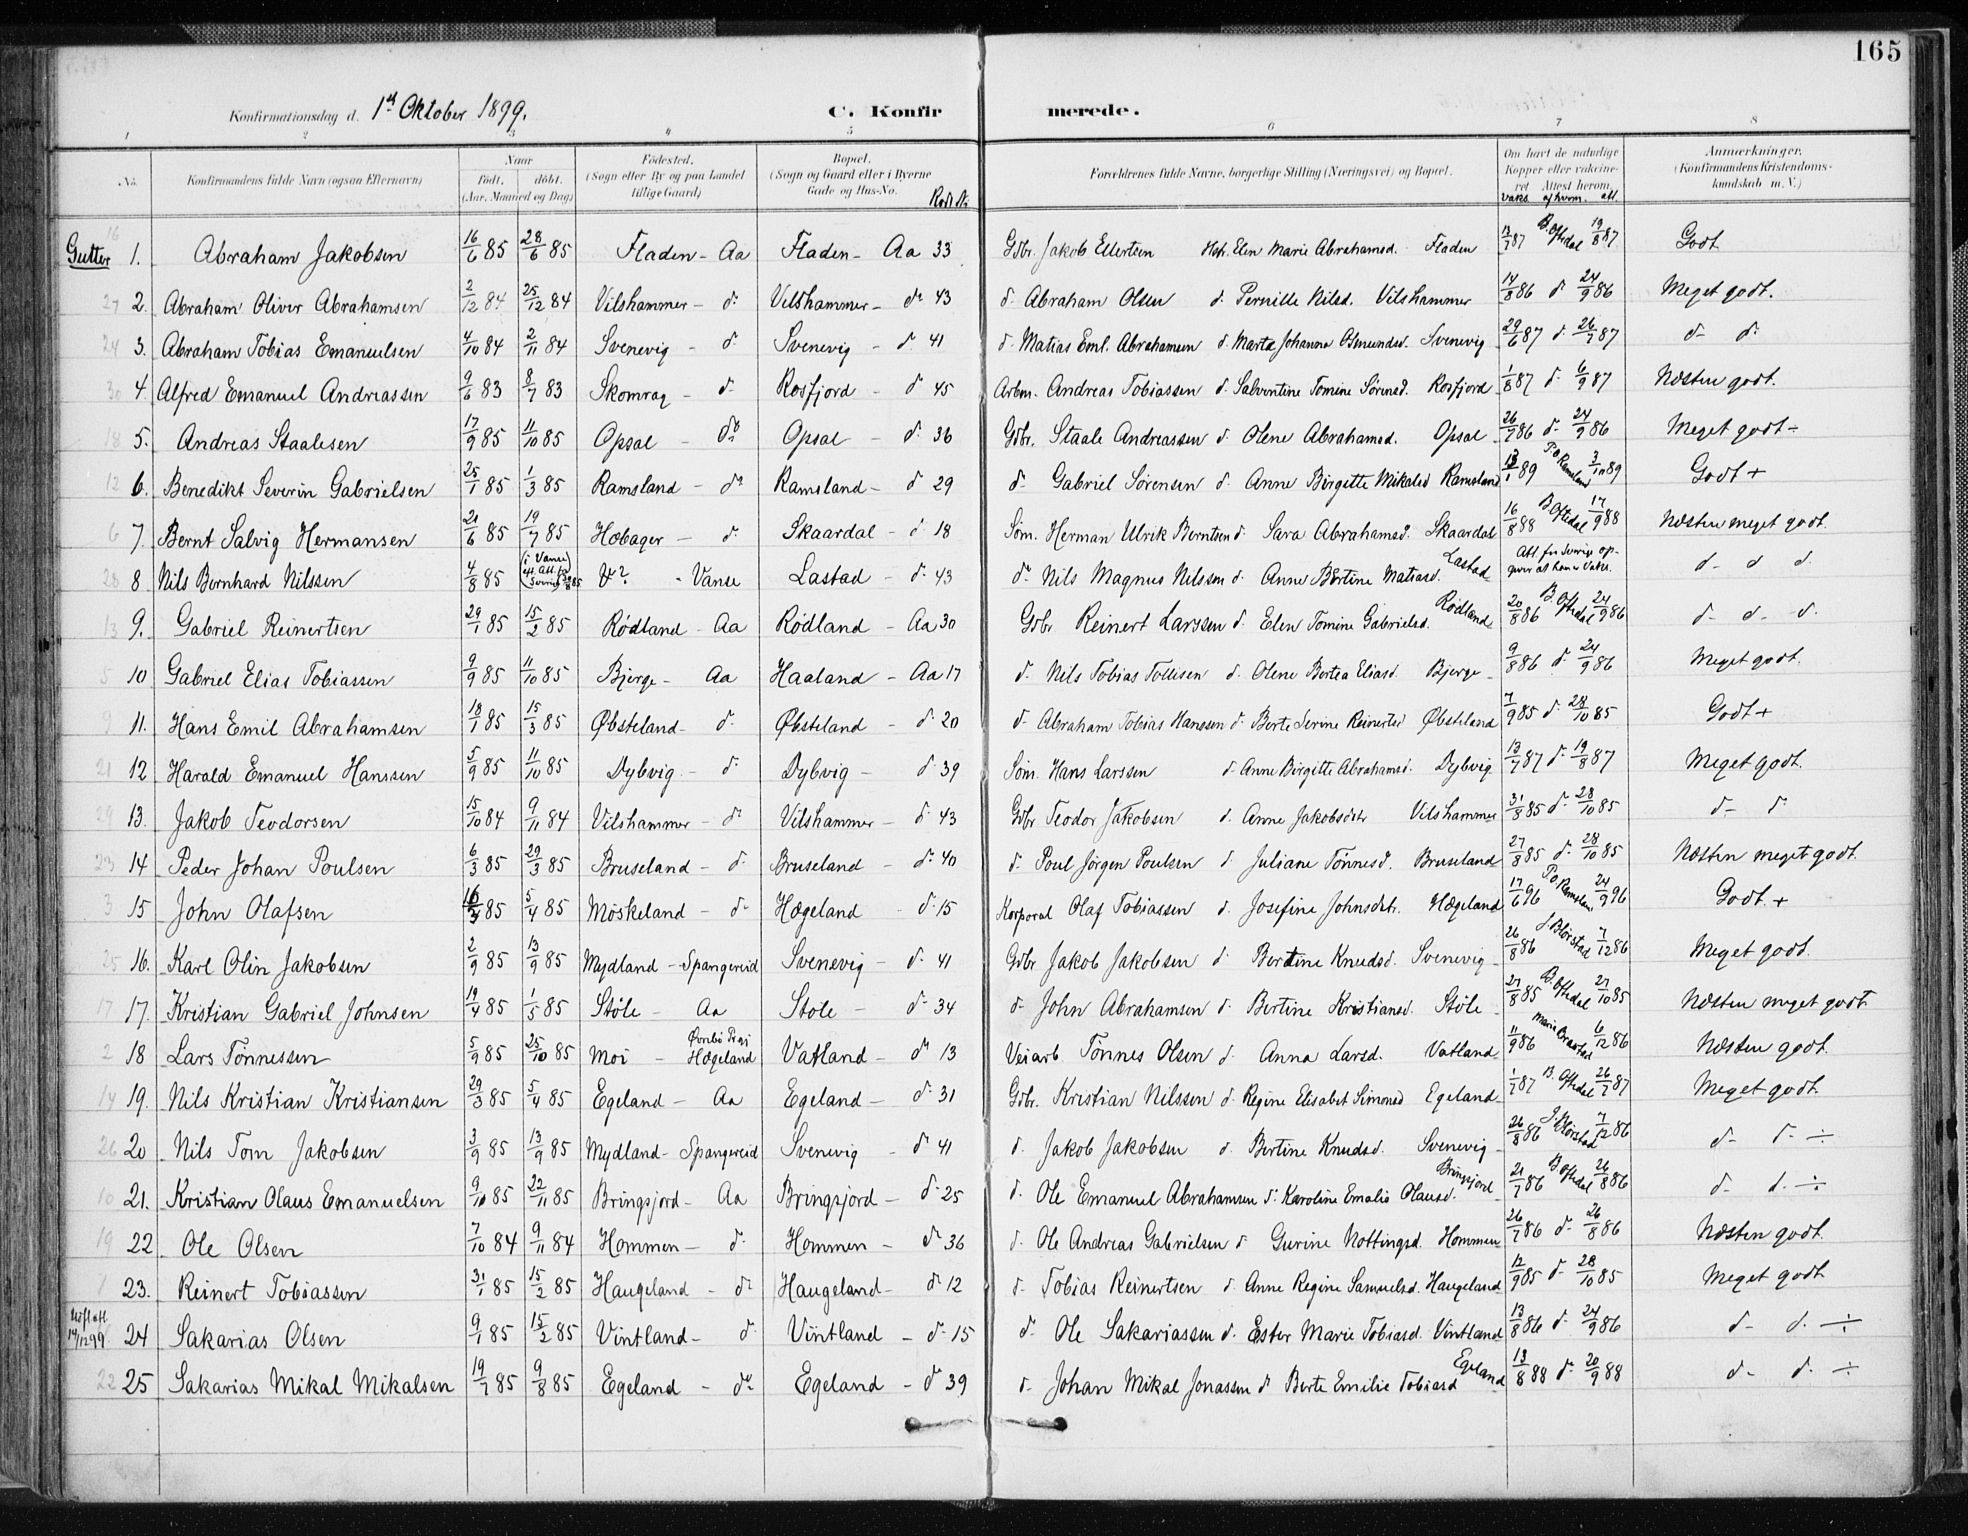 165
Konfirmationsdag d. 1ste Oktober 1899. C. Konfirmerede.
1 2 3 4 5 6 7 8
No. Konfirmandens fulde Navn (ogsaa Efternavn) Naar født, døbt. (Aar, Maaned og Dag) Fødested. (Sogn eller By og paa Landet tillige Gaard) Bopæl. (Sogn og Gaard eller i Byerne Gade og Hus-No. Forældrenes fulde Navne, borgerlige Stilling (Næringsvei) og Bopæl. Om havt de naturlige Kopper eller vaccineret Attest herom. vaks. af hvem. att. Anmærkninger. (Konfirmandens Kristendomskundskab m. V.)
Gutter 1. Abraham Jakobsen 16/6 85 28/6 85 Fladen - Aa Fladen - Aa 33 Gdbr. Jakob Ellertsen Hstr. Elen Marie Abrahamsd. Fladen 13/7 87 B. Oftedal 19/8 87 Godt
2. Abraham Oliver Abrahamsen 2/12 84 25/12 84 Vilshammer - do Vilshammer - do 43 d. Abraham Olsen d. Pernille Nilsd. Vilshammer 14/8 86 d. 24/9 86 Meget godt.
3. Abraham Tobias Emanuelsen 4/10 84 2/11 84 Svenevig - d. Svenevig - d. 41 d. Matias Eml. Abrahamsen d. Marta Johanna Osmundsd. Svenevig 29/6 87 d. 26/7 87 d- d.
4. Alfred Emanuel Andreassen 9/6 83 8/7 83 Skomrag - d. Rosfjord - d. 45 Arbm. Andreas Tobiassen d. Salventine Tomine Sørensd. Rosfjord 1/8 87 d. 6/9 87 Næsten godt.
5. Andreas Staalesen 17/9 85 11/10 85 Opsal - do Opsal - d. 36 Gdbr. Staale Andreassen d. Olene Abrahamsd. Opsal 26/7 86 d. 24/9 86 Meget godt ÷
6. Benedikt Severin Gabrielsen 25/1 85 1/3 85 Ramsland - do Ramsland - d. 29 d. Gabriel Sørensen d. Anne Birgitte Mikalsd Ramsland 89 P. O Ramsland 3/10 89 Godt +
7. Bernt Salvig Hermansen 21/6 85 19/7 85 Høbager - d. Skaardal - d. 18 Søm. Herman Ulrik Berntsen d. Sara Abrahamsd. Skaardal 16/8 88 B Oftedal 17/9 88 Næsten meget godt.
8 Nils Bernhard Nilssen 4/8 85 (i Vanse - Vanse Lastad - d. 43 do Nils Magnus Nilssen d. Anne Bertine Matiasd. Lastad d- d d.
9. Gabriel Reinertsen 29/1 85 15/2 85 Rødland - Aa Rødland - Aa 30 Gdbr Reinert Larssen d. Elen Tomine Gabrielsd. Rødland 20/8 86 B. Oftedal 24/9 86 d- d- d.
10 Gabriel Elias Tobiassen 9/9 85 11/10 85 Bjerge - Aa Haaland - Aa 17 d. Nils Tobias Tollisen d. Olene Bertea Eliasd. Bjerge 9/8 86 d. 24/9 86 Meget godt.
11. Hans Emil Abrahamsen 18/1 85 15/3 85 Øbsteland - d. Øbsteland - d. 20 d. Abraham Tobias Hanssen d. Berte Serine Reinertsd Øbsteland 7/9 85 d. 28/10 85 Godt +
12 Harald Emanuel Hanssen 5/9 85 11/10 85 Dybvig - d. Dybvig - d. 39 Søm. Hans Larssen d. Anne Birgitte Abrahamsd. Dybvig 13/7 87 d. 19/8 87 Meget godt.
13. Jakob Teodorsen 15/10 84 9/11 84 Vilshammer - do Vilshammer - d. 43 Gdbr Teodor Jakobsen d. Anne Jakobsdtr Vilshammer 31/8 85 d. 28/10 85 d- d.
14 Peder Johan Poulsen 6/3 85 29/3 85 Bruseland - d. Bruseland - d. 40 d. Poul Jørgen Poulsen d. Juliane Tønnesd. Bruseland 27/8 85 d. 28/10 85 Næsten meget godt.
15 John Olafsen 85 5/4 85 Möskeland - do Hægeland d. 15 Korporal Olaf Tobiassen d. Josefine Johnsdtr. Hægeland 17/6 96 P. O. Ramslan 24/9 96 Godt. +
16. Karl Olin Jakobsen 2/9 85 13/9 85 Mydland - Spangereid Svenevig - d. 41 Gdbr Jakob Jakobsen d. Bertine Knudsd. Svenevig 26/8 86 7/12 86 Meget godt.
17. Kristian Gabriel Johnsen 19/4 85 1/5 85 Støle - Aa Støle - d. 34 d. John Abrahamsen d. Bertine Kristiansd. Støle 27/8 85 B. Oftedal 27/10 85 Næsten meget godt
18 Lars Tönnessen 5/9 85 25/10 85 Moi - Hægeland Vatland - do 13 Veiarb. Tønnes Olsen d. Anna Larsd. Vatland 11/9 86 6/12 86 Næsten godt.
19. Nils Kristian Kristiansen 29/3 85 5/4 85 Egeland - Aa Egeland - d. 31 Gdbr. Kristian Nilssen d. Regine Elisabet Simonsd Egeland 1/7 87 B. Oftedal 26/7 87 Meget godt.
20 Nils Tom Jakobsen 3/9 85 13/9 85 Mydland - Spangereid Svenevig - do 41 d. Jakob Jakobsen d. Bertine Knudsd. Svenevig 26/8 86 7/12 86 d- d- ÷
21. Kristian Olaus Emanuelsen 9/10 85 22/11 85 Bringsjord - Aa Bringsjord - d. 25 d. Ole Emanuel Abrahamsen d. Karoline Emalie Olausd. Bringsjord 21/7 86 B Oftedal 26/8 86 d- d. ÷
22 Ole Olsen 7/10 84 9/11 84 Hommen - d. Hommen - do 36 d. Ole Andreas Gabrielsen d. Gurine Nottingsd. Hommen 26/7 86 d. 26/8 86 Næsten godt.
23. Reinert Tobiassen 31/1 85 15/2 85 Haugeland - do Haugeland - do 12 d. Tobias Reinertsen d. Anne Regine Samuelsd. Haugeland 12/9 85 d. 28/10 85 Meget godt
14/12 99 24 Sakarias Olsen 9/1 85 15/2 85 Vintland - d. Vintland - d. 15 d. Ole Sakariassen d. Ester Marie Tobiasd. Vintland 13/8 86 d. 24/9 86 d- d. ÷
25 Sakarias Mikal Mikalsen 19/7 85 9/8 85 Egeland - do Egeland - do 39 d. Johan Mikal Jonassen d. Berte Emilie Tobiasd Egeland 13/8 88 d. 20/9 88 d- d. ÷